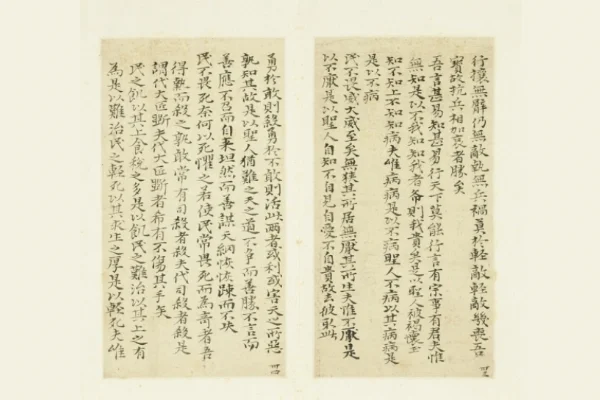 行攘無臂仍無敵執無兵禍莫於輕敵輕敵幾喪吾
寶故抗兵相加哀者勝矣
吾言甚易知甚易行天下莫能行言有宗事有君夫惟
無知是以不我知知我者希則我貴矣是以聖人被褐懷玉
知不知上不知知病夫唯病病是以不病聖人不病以其病病是
是以不病
民不畏威大威至矣無狹其所居無厭其所生夫惟不厭是
以不厭是以聖人自知不自見自愛不自貴故去彼取此
卌三
勇於敢則殺勇於不敢則活此兩者或利或害天之所惡
孰知其故是以聖人猶難之天之道不爭而善勝不言而
善應不召而自來坦然而善謀天網恢恢疎而不失
民不畏死奈何以死懼之若使民常畏死而為奇者吾
得執而殺之孰敢常有司殺者殺夫代司殺者殺是
謂代大匠斲夫代大匠斲者希有不傷其手矣
民之飢以其上食稅之多是以飢民之難治以其上之有
為是以難治民之輕死以其求生之厚是以輕死夫惟
卌四